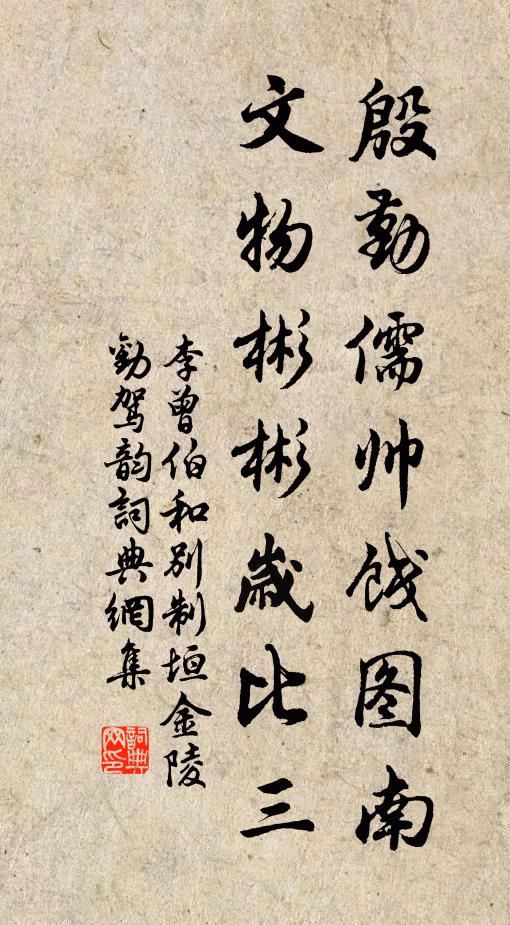 殷勤儒帅饯图南
文物彬彬岁比三
李曾伯和别制垣金陵
劝驾韵詞典網集
詞典網印